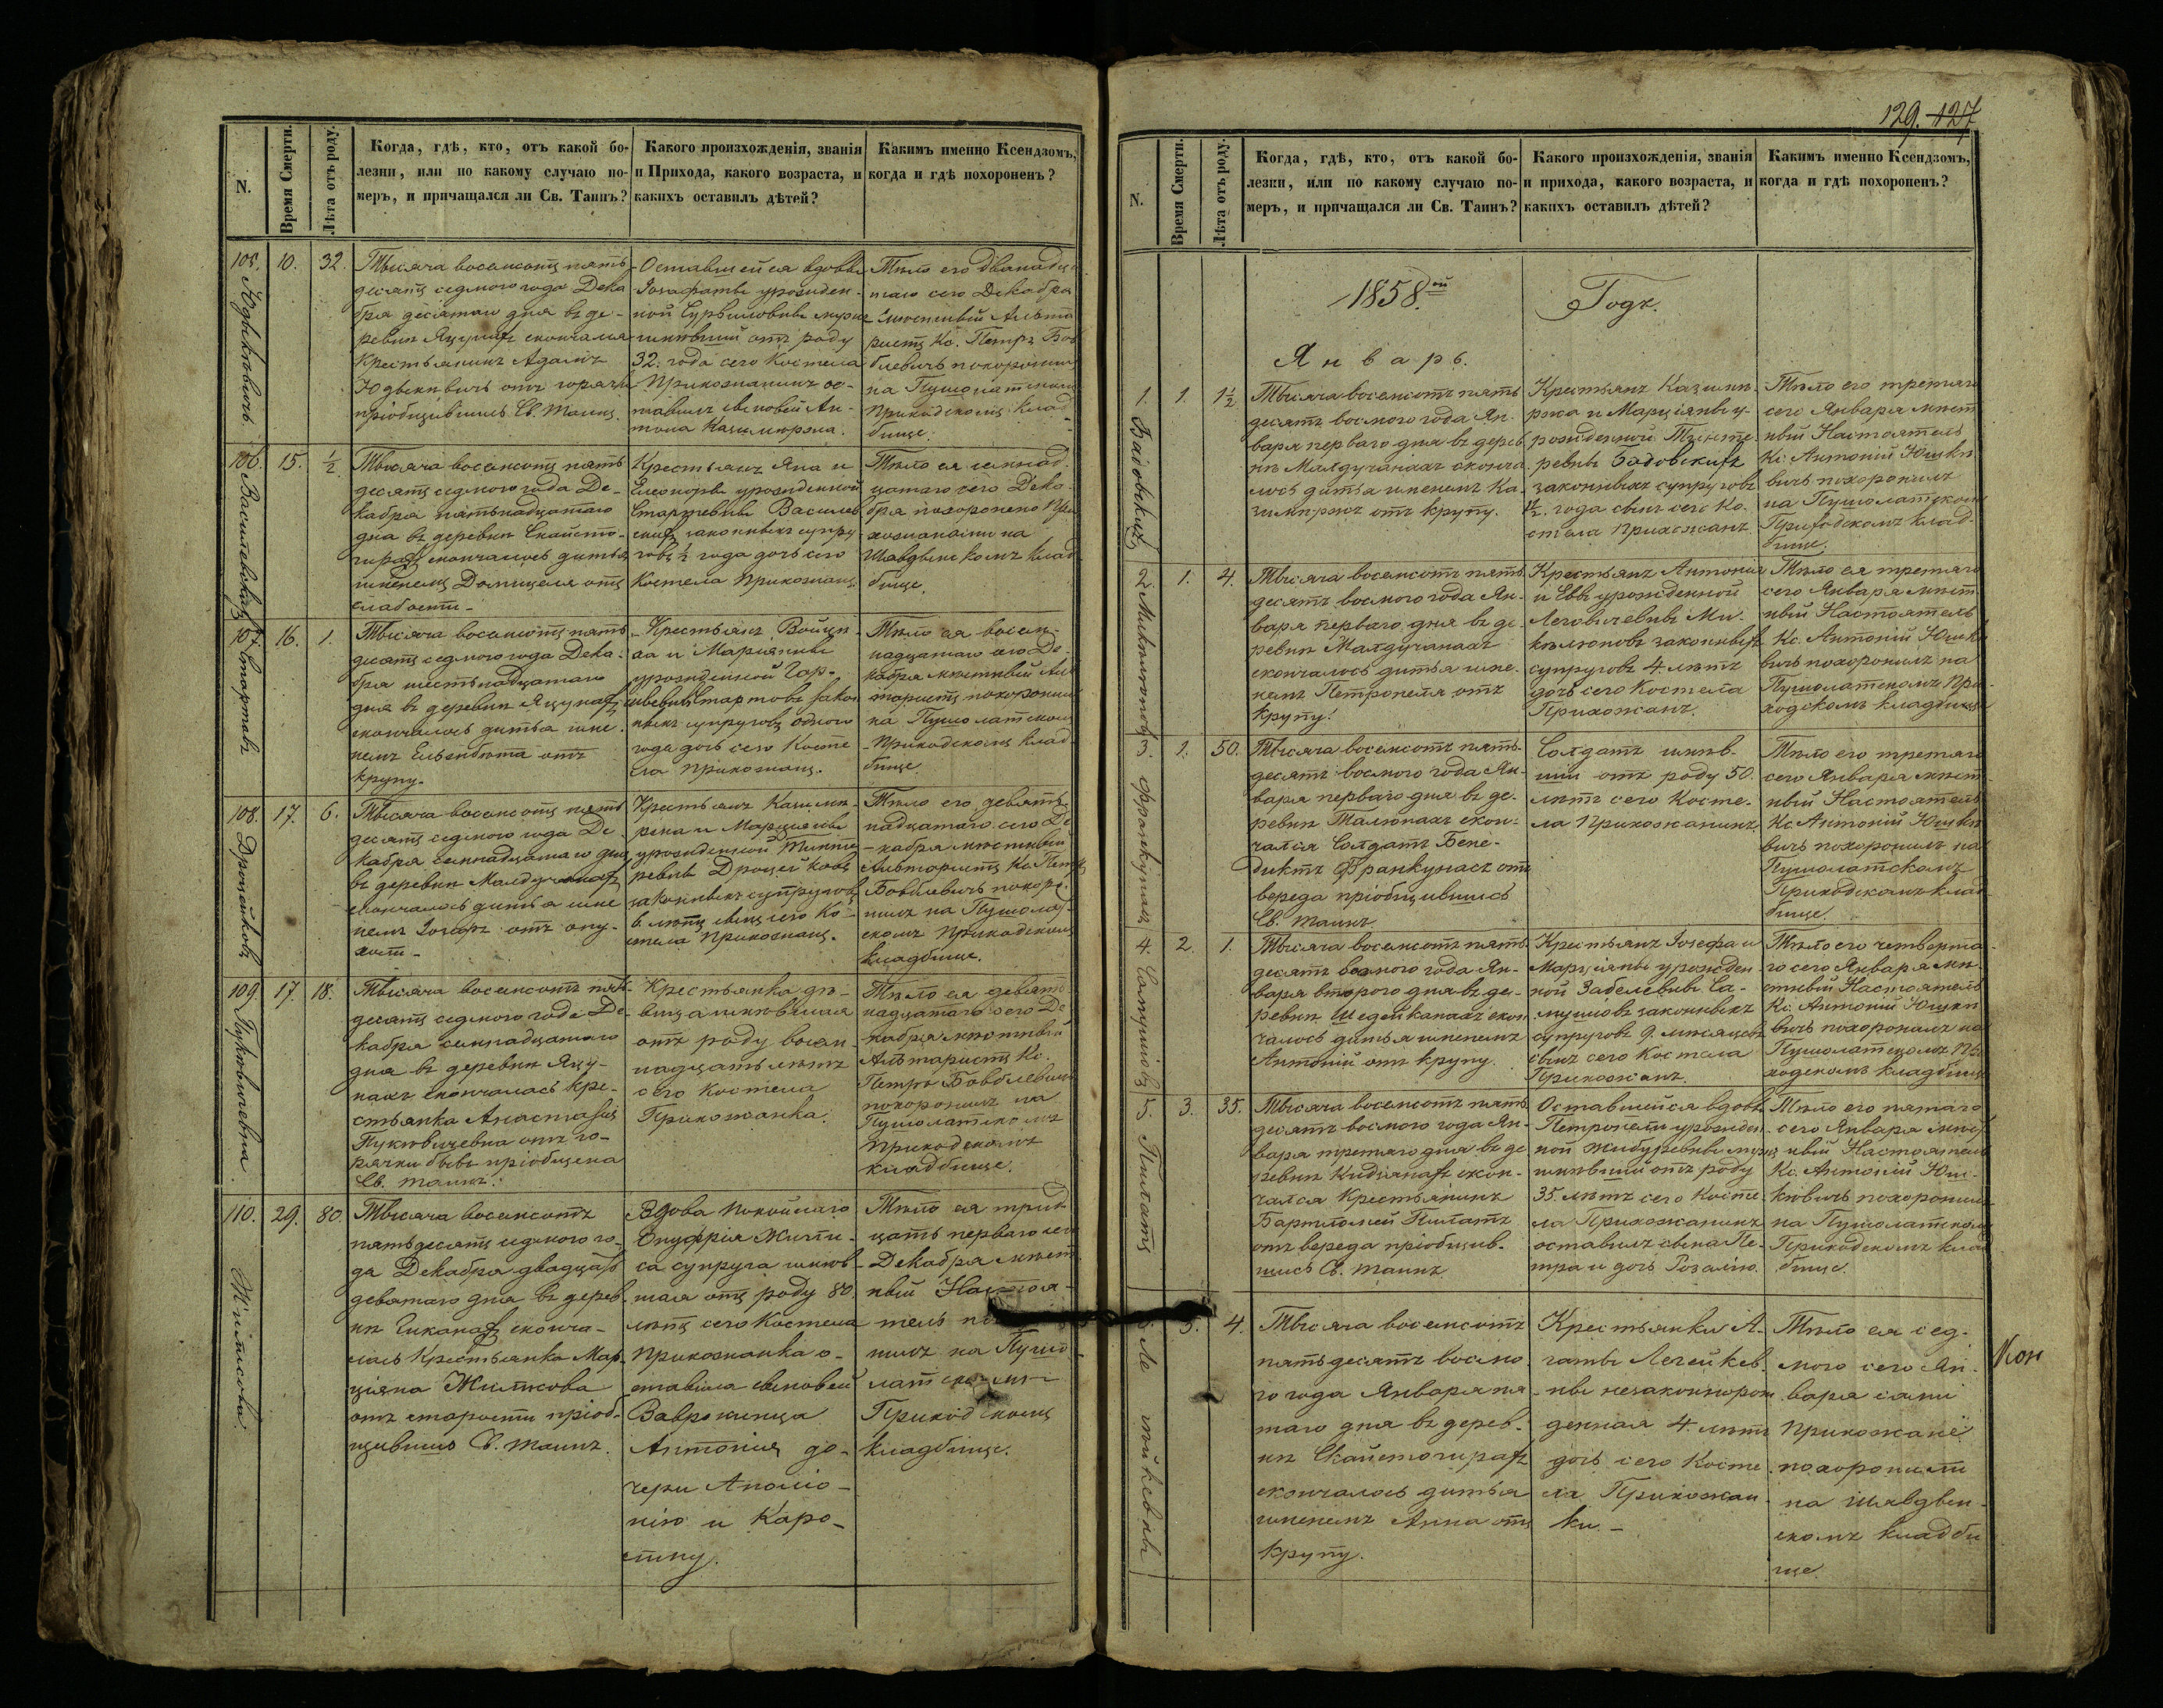 N.
Время Смерти.
Лѣта отъ роду.
Когда, гдѣ, кто, отъ какой бо-
лезни, или по какому случаю по-
меръ, и причащался ли Св. Таинъ?
Какого произхожденія, званія
и Прихода, какого возраста, и
какихъ оставилъ дѣтей?
Какимъ именно Ксендзомъ,
когда и гдѣ похороненъ?
105.
10.
32.
Тысяча восемсотъ пять
десятъ седмого года Дека
бря десятаго дня въ де-
ревни скончался
Крестьянинъ Адамъ
отъ горячки
пріобщившись Св. Таинъ.
Оставшейся вдовы
урожден-
ной мужъ
имѣвшій отъ роду
32. года сего Костела
Прихожанинъ ос-
тавилъ сыновей Ан-
тона Казимірза.
Тѣло его двѣнадца
таго сего Декабря
мѣстный Альта
ристъ Кс. Петръ Бов
блевичъ похоронилъ
на Пушолатскомъ
Приходскомъ Клад
бище.
106.
15.
1/2
Тысяча восемсотъ пять
десятъ седмого года Де-
кабря пятьнадцатаго
дня въ деревни Скайсто-
гирахъ скончалось дитя
именемъ Домицеля отъ
слабости
Крестьянъ Яна и
Елеоноры урожденной
законныхъ супру
говъ 1/2 года дочь сего
Костела Прихожанъ
Тѣло ея семнад
цатаго сего Дека-
бря похоронено При
хожанами на
Шавдвинскомъ клад
бище.
107.
16.
1.
Тысяча восемсотъ пять
десятъ седмого года Дека-
бря шестьнадцатаго
дня въ деревни
скончалось дитя име
немъ Ельзбета отъ
крупу.
Крестьянъ Войце
ха и Маріянны
урожденной
закон
ныхъ супруговъ одного
года дочь сего Косте
ла Прихожанъ.
Тѣло ея восем-
надцатаго сего Де-
кабря мѣстный Аль
таристъ похоронилъ
на Пушолатскомъ
Приходскомъ клад
бище
108.
17.
6.
Тысяча восемсотъ пять
десятъ седмого года Де
кабря семнадцатаго дня
въ деревни Малдучанахъ
скончалось дитя име
немъ отъ опу-
холи
Крестьянъ Казими-
ржа и Марціянны
урожденной
ревны Дроцейковъ
законныхъ супруговъ
6. лѣтъ сынъ сего Ко-
стела Прихожанъ.
Тѣло его девять-
надцатаго сего Де
кабря мѣстный
Альтаристъ Кс. Петръ
Бовблевичъ похоро-
нилъ на Пушолат
скомъ Приходскомъ
кладбище.
109
17
18.
Тысяча восемсотъ пять
десятъ седмого года Де-
кабря семнадцатаго
дня въ деревни Яцу-
нахъ скончалась Кре-
стьянка Анастазія
отъ го-
рячки бывъ пріобщена
Св. Таинъ.
Крестьянка дѣ-
вица имѣвшая
отъ роду восем-
надцать лѣтъ
сего Костела
Прихожанка.
Тѣло ея девять
надцатаго сего Де
кабря мѣстный
Альтаристъ Кс.
Петръ Бовблевичъ
похоронилъ на
Пушолатскомъ
Приходскомъ
кладбище.
110.
29.
80
Тысяча восемсотъ
пятьдесятъ седмого го-
да Декабря двадцать
девятаго дня въ дерев-
ни Чиканахъ сконча-
лась Крестьянка Мар-
ціяна
отъ старости пріоб-
щившись Св. Таинъ.
Вдова Покойнаго
Онуфрія
са супруга имѣв-
шая отъ роду 80.
лѣтъ сего Костела
Прихожанка о-
ставила сыновей
Вавржинца
Антонія до-
чери Аполло-
нію и Каро-
лину.
Тѣло ея трид
цать перваго сего
Декабря мѣст
ный Настоя-
тель
нилъ на Пушо
латскомъ
Приходскомъ
кладбище.
129. 127
N.
Время Смерти.
Лѣта отъ роду.
Когда, гдѣ, кто, отъ какой бо-
лезни, или по какому случаю по-
меръ, и причащался ли Св. Таинъ?
Какого произхожденія, званія
и прихода, какого возраста, и
какихъ оставилъ дѣтей?
Какимъ именно Ксендзомъ,
когда и гдѣ похороненъ?
1858.ой Годъ.
Январь.
1.
Бадовскихъ
1.
1 1/2
Тысяча восемсотъ пять
десятъ восмого года Ян-
варя перваго дня въ дерев
нѣ Малдучанахъ сконча
лось дитя именемъ Ка-
зимиржъ отъ крупу.
Крестьянъ Казими-
ржа и Марціянны у-
рожденной
ревны Бадовскихъ
законныхъ супруговъ
1 1/2. года сынъ сего Ко-
стела Прихожанъ
Тѣло его третяго
сего Января мѣст
ный Настоятель
Кс. Антоній Юшке
вичъ похоронилъ
на Пушолатскомъ
Приходскомъ клад-
бище.
2.
1.
4.
Тысяча восемсотъ пять
десятъ восмого года Ян-
варя перваго дня въ де-
ревни Малдучанахъ
скончалось дитя име-
немъ Петронеля отъ
Крупу.
Крестьянъ Антонія
и Евы урожденной
Ми-
законныхъ
супруговъ 4. лѣтъ
дочь сего Костела
Прихожанъ.
Тѣло ея третяго
сего Января мѣст
ный Настоятель
Кс. Антоній Юшке
вичъ похоронилъ на
Пушолатскомъ При
ходскомъ кладбище
3.
Франкунасъ
1.
50.
Тысяча восемсотъ пять-
десятъ восмого года Ян-
варя перваго дня въ де-
ревни Талюнахъ скон-
чался Солдатъ Бене-
диктъ Франкунасъ отъ
вереда пріобщившись
Св. Таинъ.
Солдатъ имѣв-
ши отъ роду 50.
лѣтъ сего Косте-
ла Прихожанинъ
Тѣло его третяго
сего Января мѣст-
ный Настоятель
Кс. Антоній Юшке
вичъ похоронилъ на
Пушолатскомъ
Приходскомъ клад
бище.
4.
2.
1.
Тысяча восемсотъ пять
десятъ восмого года Ян-
варя второго дня въ де-
ревни Шедейканахъ скон
чалось дитя именемъ
Антоній отъ крупу.
Крестьянъ Іосефа и
Марціяны урожден
ной Забелевны
законныхъ
супруговъ 9. мѣсяцевъ
сынъ сего Костела
Прихожанъ.
Тѣло его четверта-
го сего Января мѣ-
стный Настоятель
Кс. Антоній Юшке
вичъ похоронилъ на
Пушолатскомъ При
ходскомъ кладбище
5.
Пилатъ
3.
35.
Тысяча восемсотъ пять
десятъ восмого года Ян-
варя третяго дня въ де
ревни скон-
чался Крестьянинъ
Бартломей Пилатъ
отъ вереда пріобщив-
шись Св. Таинъ
Оставшейся вдовы
Петронели урожден
ной мужъ
имѣвшій отъ роду
35. лѣтъ сего Косте-
ла Прихожанинъ
оставилъ сына Пе-
тра и дочь Розалію.
Тѣло его пятаго
сего Января мѣст
ный Настоятель
Кс. Антоній Юш-
кевичъ похоронилъ
на Пушолатскомъ
Приходскомъ клад
бище.
5.
4.
Тысяча восемсотъ
пятьдесятъ восмо
го года Января пя
таго дня въ дерев-
ни Скайстогирахъ
скончалось дитя
именемъ Анна отъ
крупу.
Крестьянки А-
гаты Легейкев-
ны незаконнорож
денная 4. лѣтъ
дочь сего Косте
ла Прихожан-
ки.
Тѣло ея сед-
мого сего Ян-
варя сами
Прихожане
похоронили
на Шавдвин-
скомъ кладби
ще.
Кон